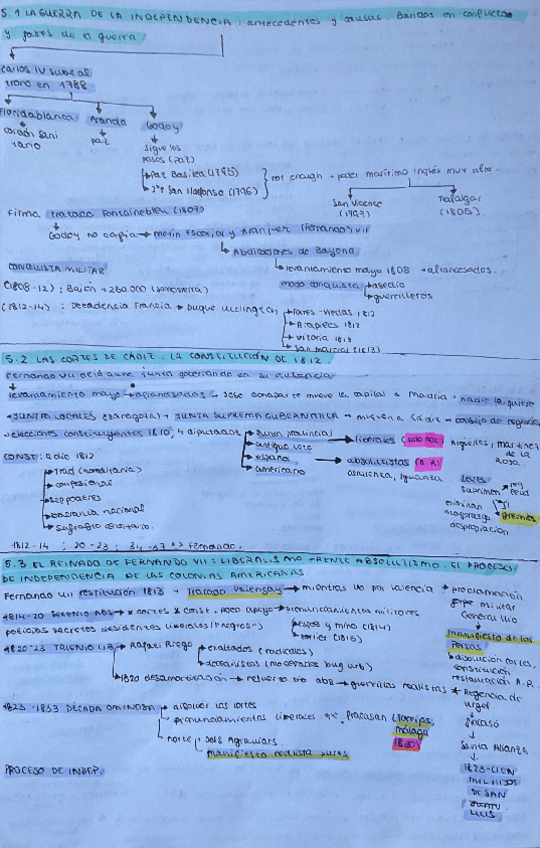 5.1 LA GUERRA DE LA INDEPENDENCIA: antecedentes y causas. Bandos en conflicto
y fases de la guerra
Carlos IV sube al
trono en 1788
Floridablanca Aranda Godoy
cordón sani
tario
paz
sigue los
pasos (paz)
Paz Basilea (1795)
San Ildefonso (1796)
not enough poder marítimo inglés muy alto.
San Vicente
(1797)
Trafalgar
(1805)
Firma tratado Fontainebleu (1807)
Godoy no copia motín Escorial y Aranjuez (Fernando) VII
Abdicaciones de Bayona
levantamiento mayo 1808
CONQUISTA MILITAR
modo conquista asedio
guerrilleros
(1808-12): Bailén 250.000 (Somosierra)
(1812-14): Decadencia Francia Duque Wellington
Arapiles 1812
Vitoria 1813
San Marcial (1813)
5.2 LAS CORTES DE CÁDIZ. LA CONSTITUCIÓN DE 1812.
Fernando VII junta gobernando en su ausencia
levantamiento mayo afrancesados José Bonaparte mueve la capital a Madrid nadie lo quiere
JUNTAS LOCALES (Zaragoza) JUNTA SUPREMA GUBERNATIVA Cádiz consejo de regencia
elecciones constituyentes 1810, 4 diputados
junta provincial
antiguo voto
español
americano
liberales
absolutistas (A.R)
Argüelles, Martínez
de la
Rosa.
CONST: Cádiz 1812
trad (hereditaria)
confesional
sep poderes
soberanía nacional
sufragio
LEYES
suprimen
feud
eliminan
mayorazgo, gremios
1812-14; 20-23; 34-37 Fernando.
5.3 EL REINADO DE FERNANDO VII: LIBERALISMO FRENTE ABSOLUTISMO. EL PROCESO
DE INDEPENDENCIA DE LAS COLONIAS AMERICANAS
Fernando VII restitución 1813 Tratado Valençay mientras va por Valencia proclamación
golpe militar
General Elío
manifiesto de los
Persas
disolución cortes,
constitución
restauración A.R.
1814-20 SEXENIO ABS x cortes x const. poco apoyo pronunciamientos militares
policías secretos disidentes liberales (negros)
espoz y mina (1814)
porlier (1815)
1820-23 TRIENIO LIB Rafael Riego exaltados (radicales)
doceañistas (moderados burg urb)
1820 desamortización guerrillas realistas Regencia de
Urgel
fracasó
Santa Alianza
1823-CIEN
MIL HIJOS
DE SAN
LUIS
1823-1833 DÉCADA OMINOSA disolver las cortes
pronunciamientos liberales que fracasan (Torrijos,
Málaga
1830)
norte
manifiesto realista puros
PROCESO DE INDEP.